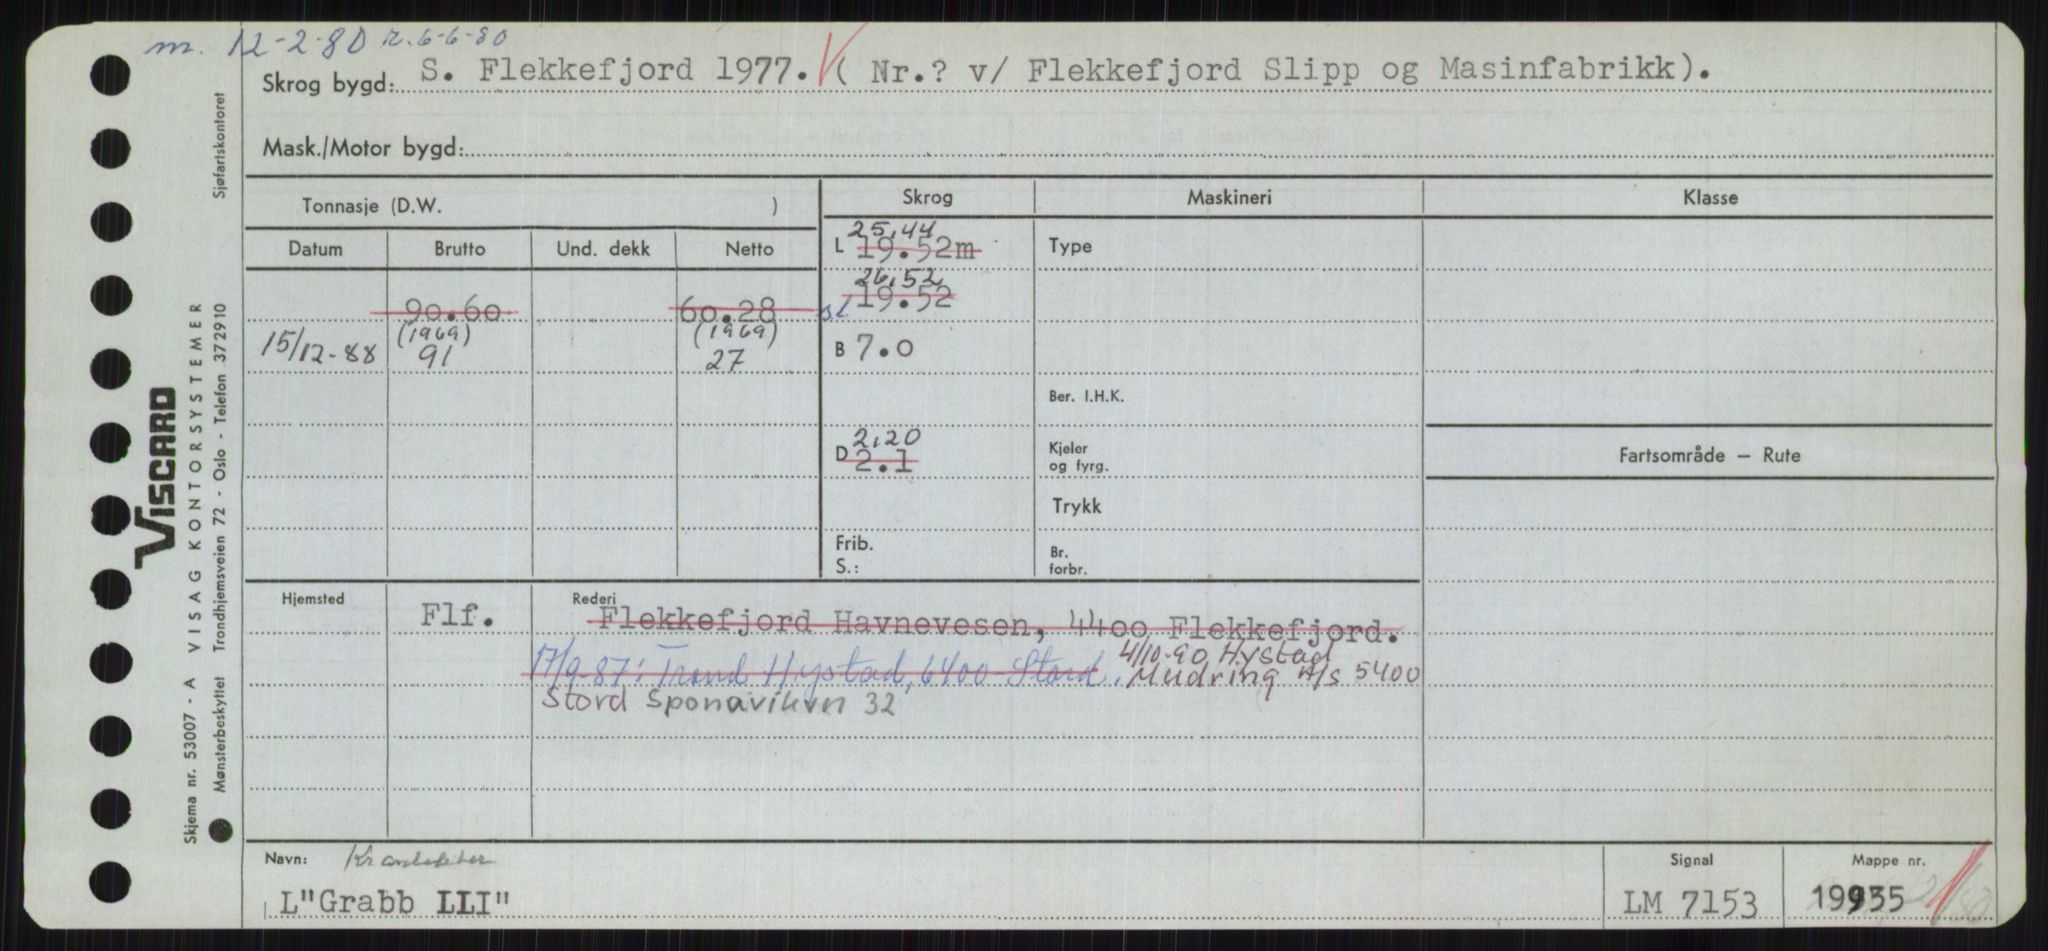 m. 12-2-80 r. 6-6-80
Skrog bygd: S. Flekkefjord 1977. V ( Nr.? v/ Flekkefjord Slipp og Masinfabrikk).
Mask./Motor bygd:
Tonnasje (D.W. )
Skrog Maskineri Klasse
Datum Brutto Und. dekk Netto
25,44
L 19.52m Type
26,52
sl 19.52
90.60 60.28
(1969) (1969)
15/12-88 91 27
B 7.0
Ber. I.H.K.
2,20
D 2.1
Kjeler
og fyrg.
Fartsområde — Rute
Trykk
Frib.
S.:
Br.
forbr.
Hjemsted Flf.
Rederi
Flekkefjord Havnevesen, 4400 Flekkefjord.
17/9-87: Trond Hystad, 6400 Stord. 4/10-90 Hystad
Mudring A/s 5400
Stord Sponaviken 32
Navn:
L"Grabb LLI"
Signal
LM 7153
Mappe nr.
19935
VISCARD
Skjema nr. 53007 - A VISAG KONTORSYSTEMER
Mønsterbeskyttet Trondhjemsveien 72 - Oslo - Telefon 372910 Sjøfartskontoret